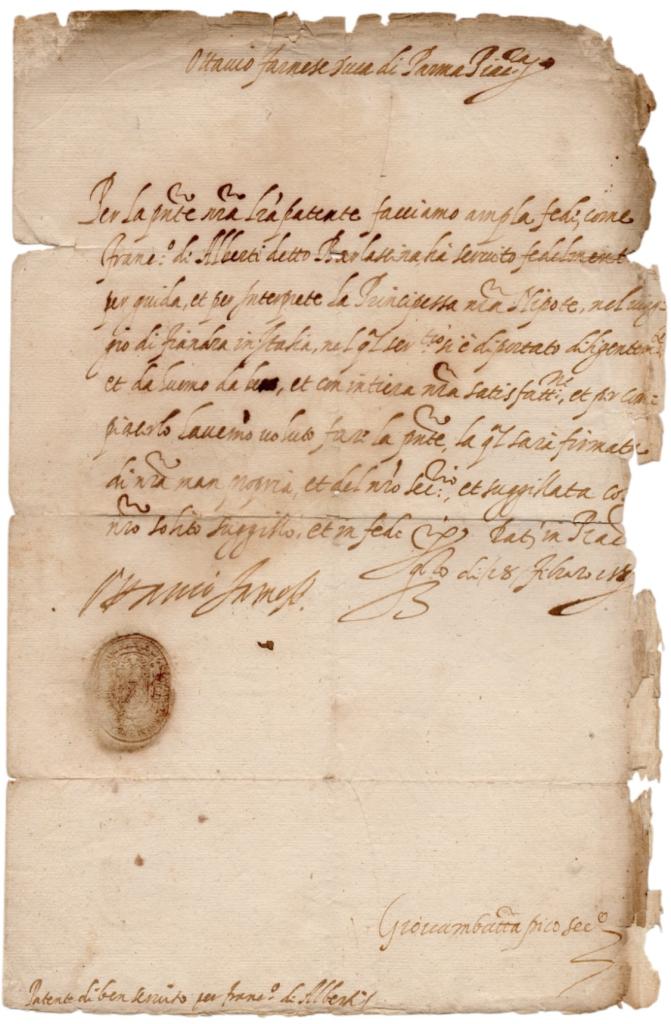 Ottavio farnese Duca di Parma Piac.za
Per la pnte nra lra patente facciamo ampla fede, come
Franc.o di Alberti detto Barlassina, ha servito fedelment
per guida, et per Interprete la Principessa nra Nipote, nel viag-
gio di fiandra in Italia, nel ql ser.tio s'è diportato diligentem.te
et da huomo da ben, et con intiera nra satisfatt.ne, et per com-
piacerlo havemo voluto fare la pnte, la ql sarà firmata
di nra man propria, et del nro sec.rio, et suggillata co
nro solito suggillo, et in fede Dat; in Piac
di 18 febraro 15
Ottavio farnese
Giovambatta pico sec.o
Patente di ben servito per franc.o di Alberti